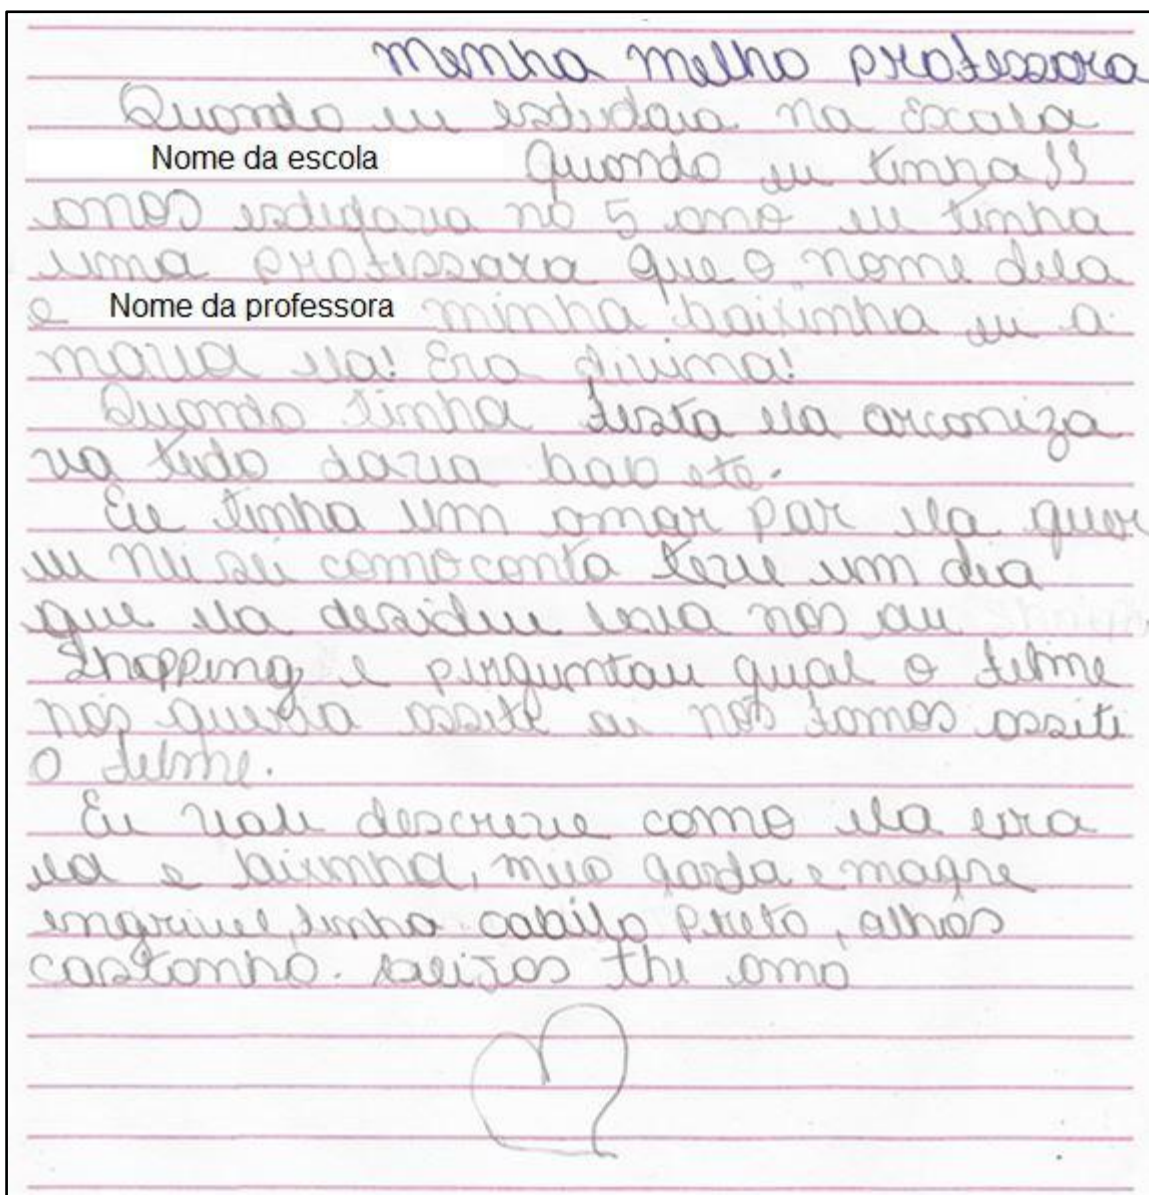 Menha melho professora
Quando eu estudava na Escola
Nome da escola Quando eu tinha 11
anos estudava no 5 ano eu tinha
uma professora que o nome dela
e Nome da professora minha baixinha eu a
mava ela! Era divina!
Quando tinha festa ela arconiza
va tudo dava bolo etc.
Eu tinha um amor por ela quer
eu ne sei como conta teve um dia
que ela desideu leva nos au
Shopping e pirguntou qual o filme
nos queria assiti ai nos fomos assiti
o filme.
Eu vou descreve como ela era
ela e baixinha, gorda e magre
tinha cabilo preto, olhos
castonho. beijos the amo